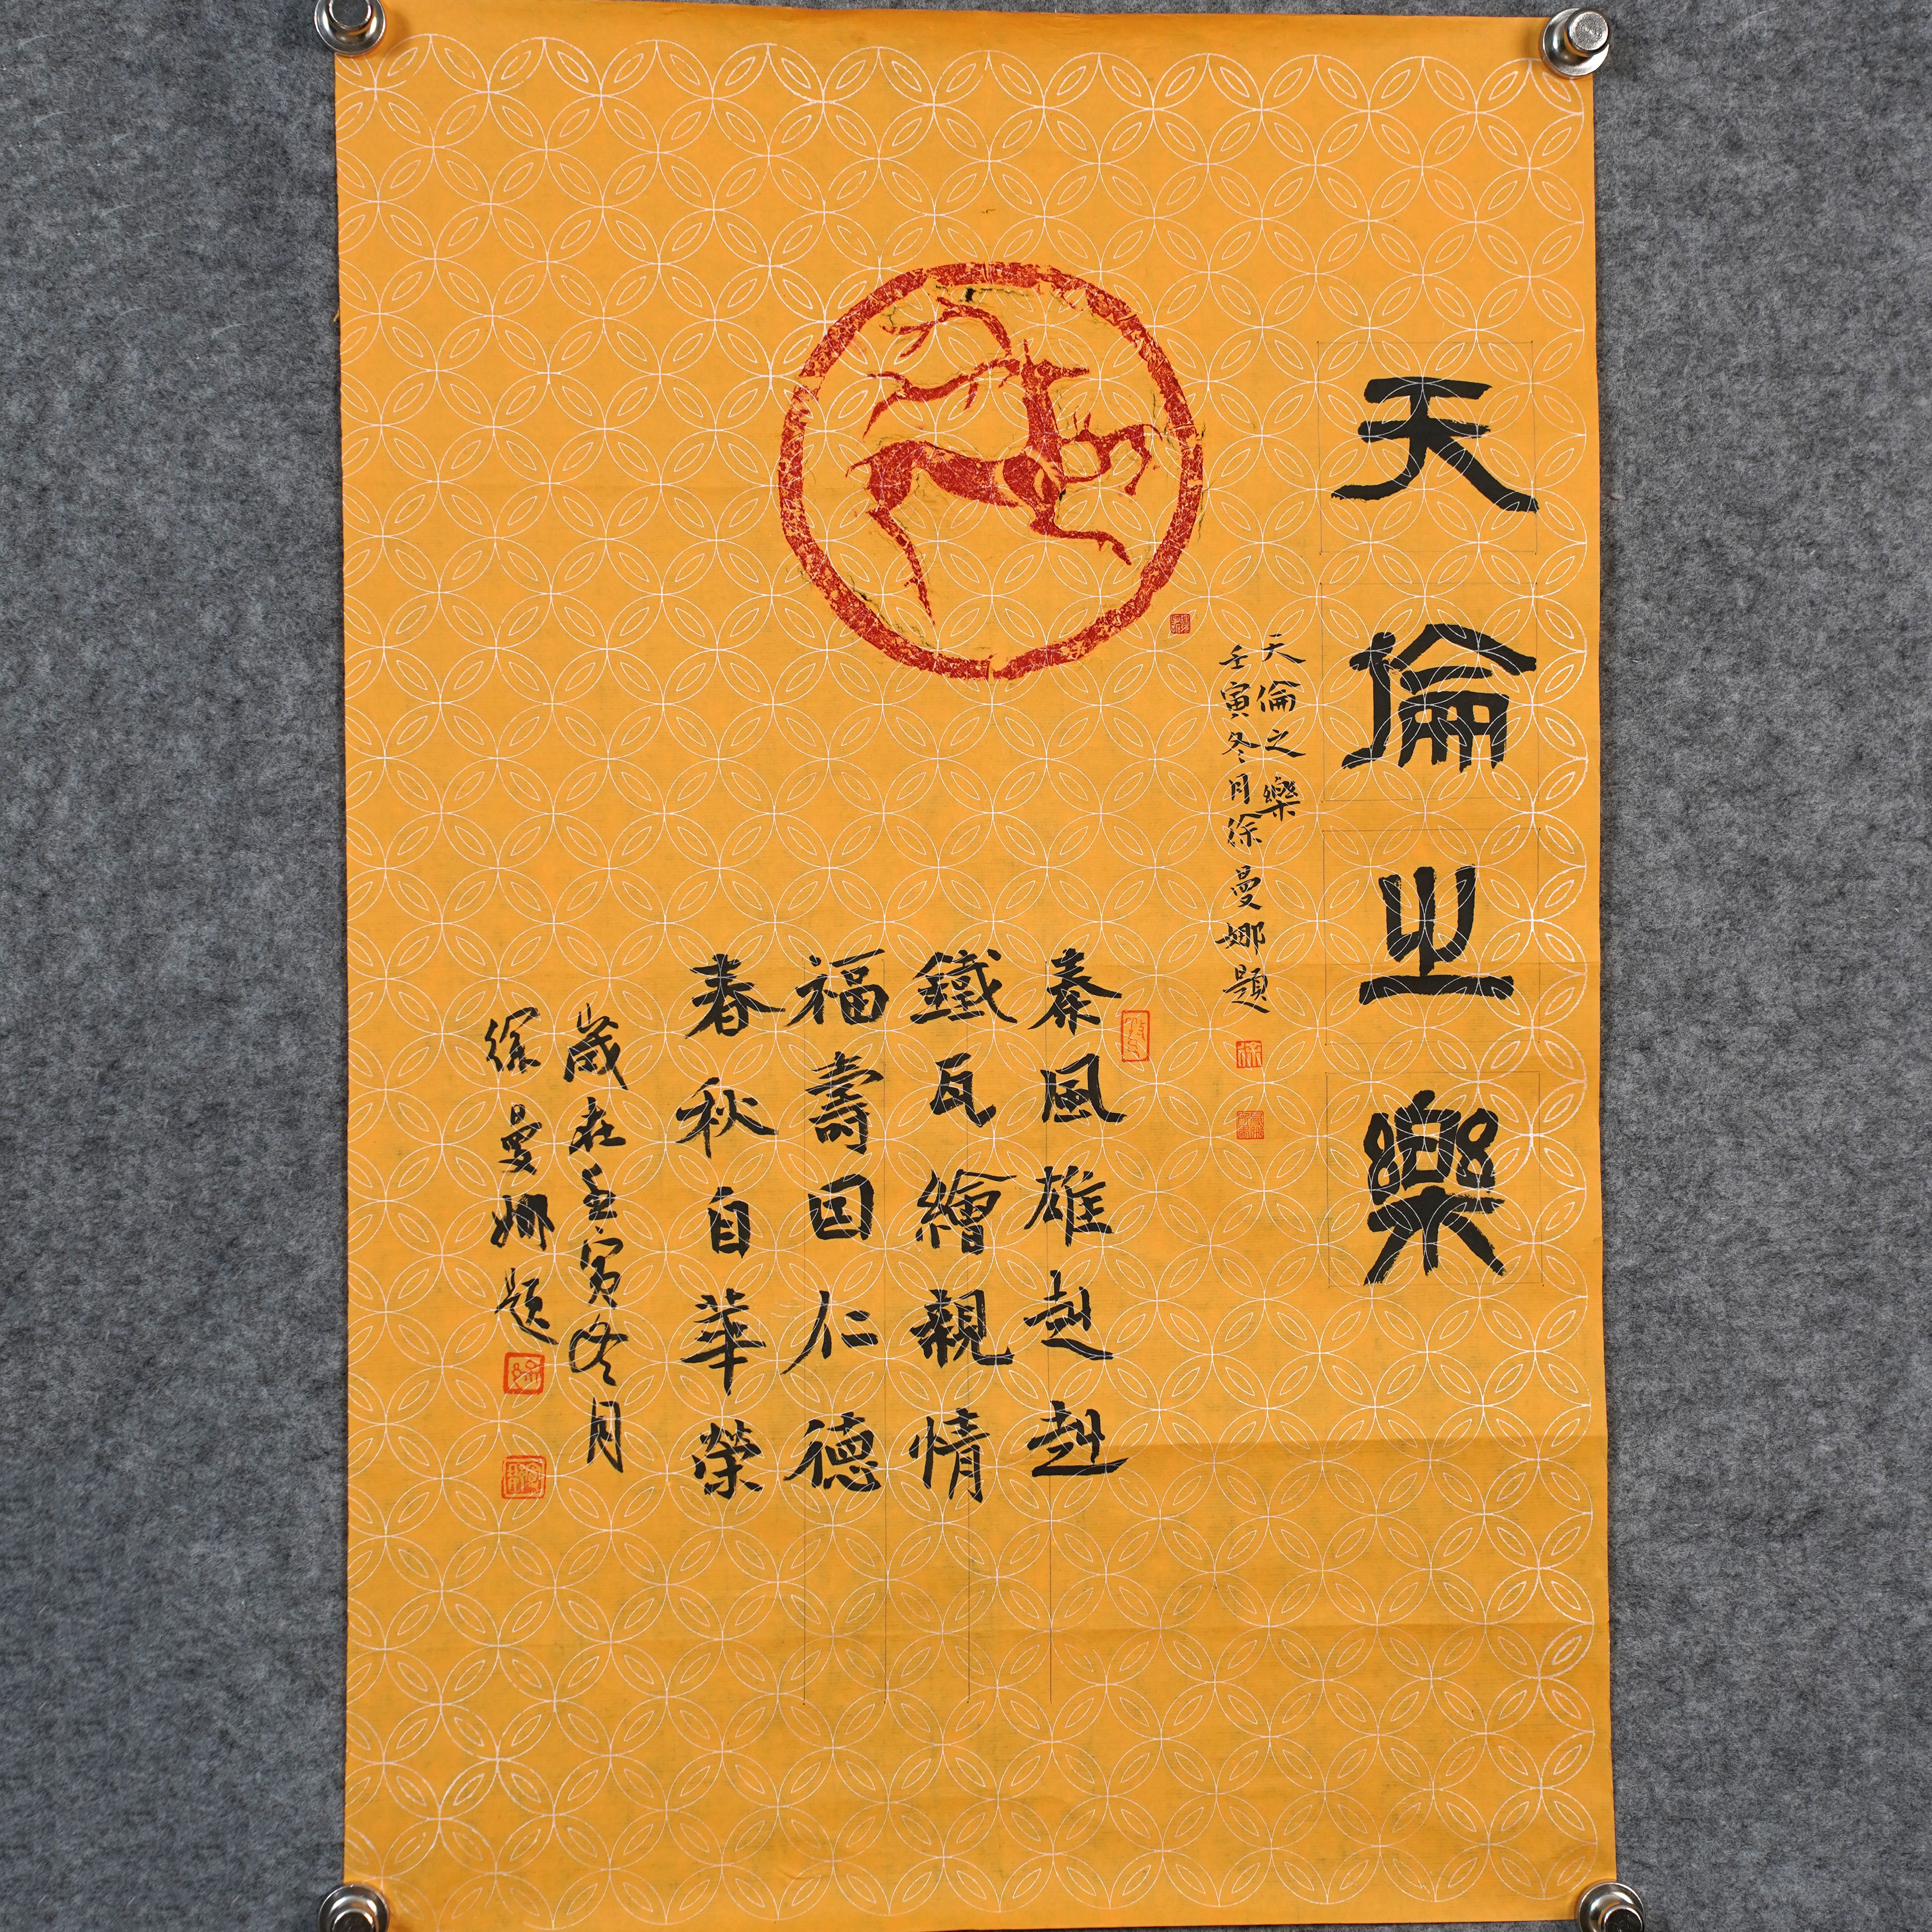 天倫之樂
天倫之樂
壬寅冬月徐曼娜題
秦風雄赳赳
鐵瓦繪親情
福壽因仁德
春秋自華榮
歲在壬寅冬月
徐曼娜題